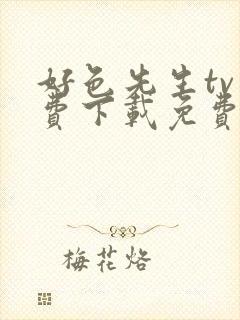 好色先生tv
费下载免费
梅花烙